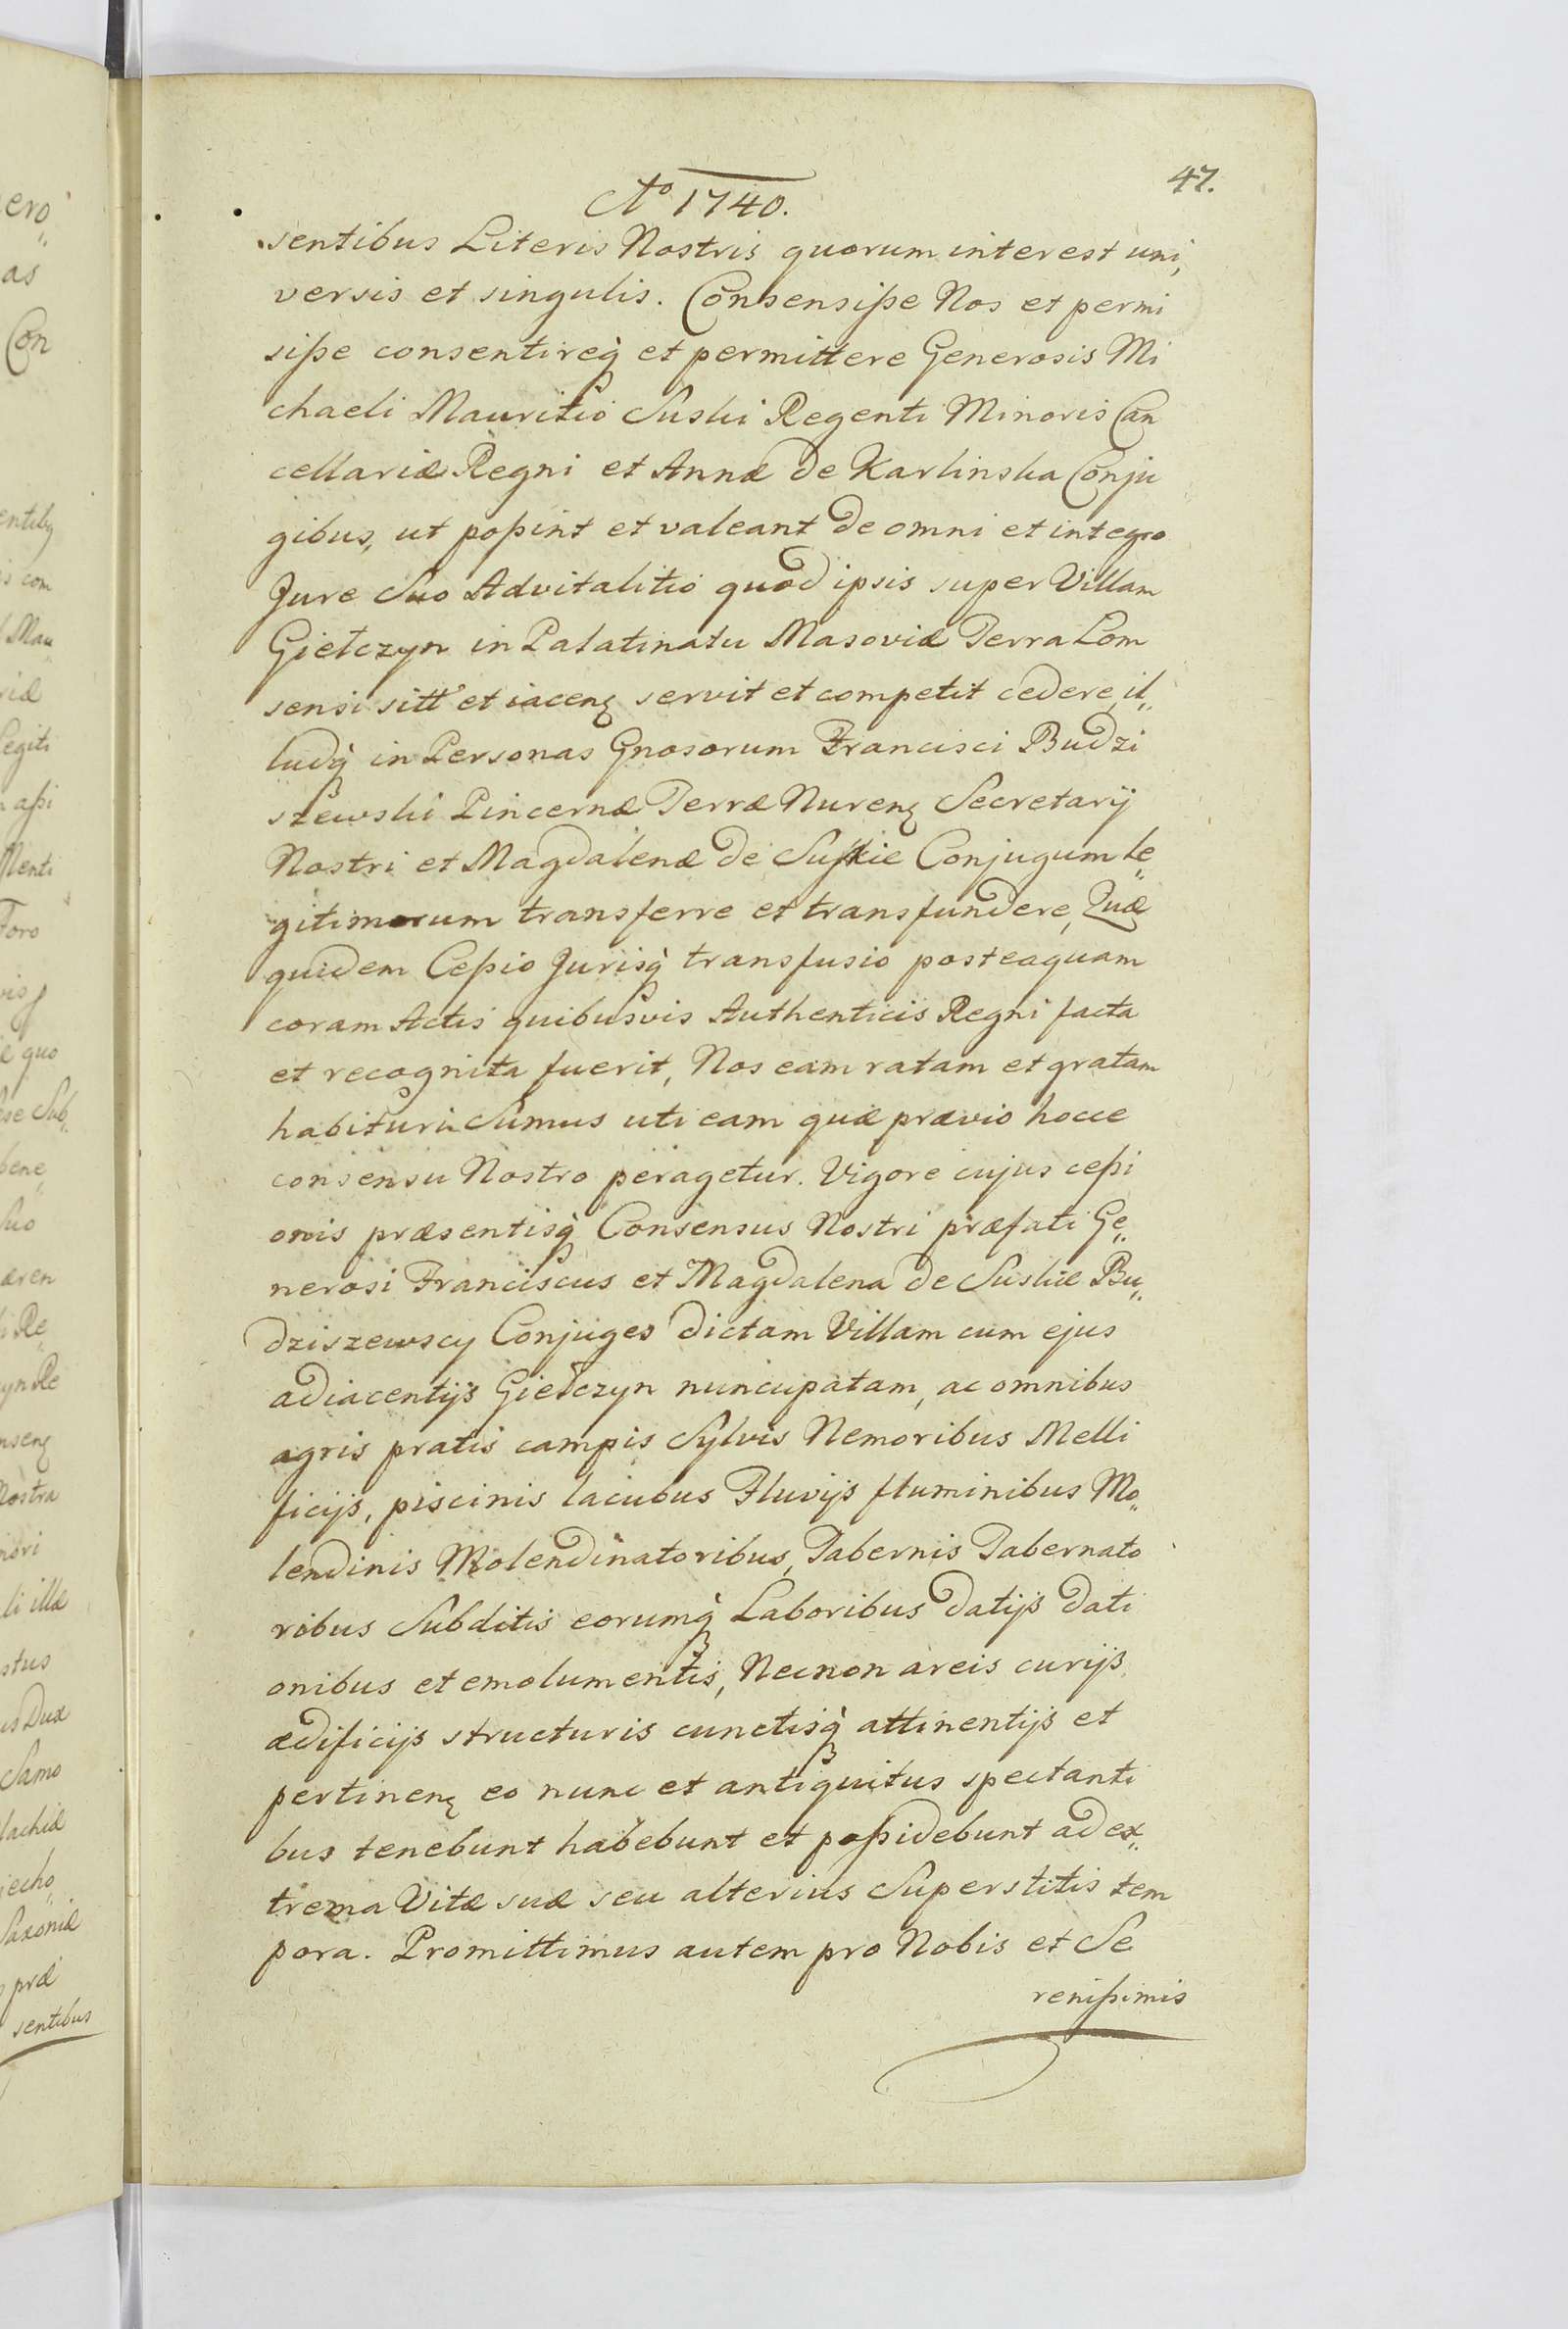 47.
Aº 1740.
sentibus Literis Nostris quorum interest uni„
versis et singulis. Consensiße Nos et permi
siße consentireq̀ et permittere Generosis Mi
chaeli Mauritio Suski Regenti Minoris Can
cellariæ Regni et Annæ de Karlinska Conju
gibus, ut poßint et valeant de omni et integro
Jure Suo Advitalitio quod ipsis super Villam
Giełczyn in Palatinatu Masoviæ Terra Lom
sensi sitt̃ et iacenȩ servit et competit cedere, il„
ludq̀ in Personas Gnosorum Francisci Budzi
szewski Pincernæ Terræ Nurenȩ Secretarij
Nostri et Magdalenæ de Suskie Conjugum le„
gitimorum transferre et transfundere, Quæ
quidem Ceßio Jurisq̀ transfusio posteaquam
coram Actis quibusvis Authenticis Regni facta
et recognita fuerit, Nos eam ratam et gratam
habituri Sumus uti eam quæ prævio hocce
consensu Nostro peragetur. Vigore cujus ceßi
onis præsentisq̀ Consensus Nostri præfati Ge„
nerosi Franciscus et Magdalena de Suskie Bu„
dziszewscy Conjuges dictam Villam cum ejus
adiacentijs Giełczyn nuncupatam, ac omnibus
agris pratis campis Sylvis Nemoribus Melli
ficijs, piscinis lacubus Fluvijs fluminibus Mo„
lendinis Molendinatoribus, Tabernis Tabernato
ribus Subditis eorumq̀ Laboribus datijs dati
onibus et emolumentis, Necnon areis curijs
ædificijs structuris cunctisq̀ attinentijs et
pertinenȩ eo nunc et antiquitus spectanti
bus tenebunt habebunt et poßidebunt ad ex„
trema Vitæ suæ seu alterius Superstitis tem
pora. Promittimus autem pro Nobis et Se
renißimis
ero„
as
Con
entibq
is com
Mau„
riæ
Legiti
aßi
Menti
Foro
vis
quo
Sub„
bene„
Suo
æren
Re„
yn Re
nsenȩ
Nostra
li illæ
stus
us Dux
Samo
lachiæ
iecho„
Saxoniæ
præ
sentibus